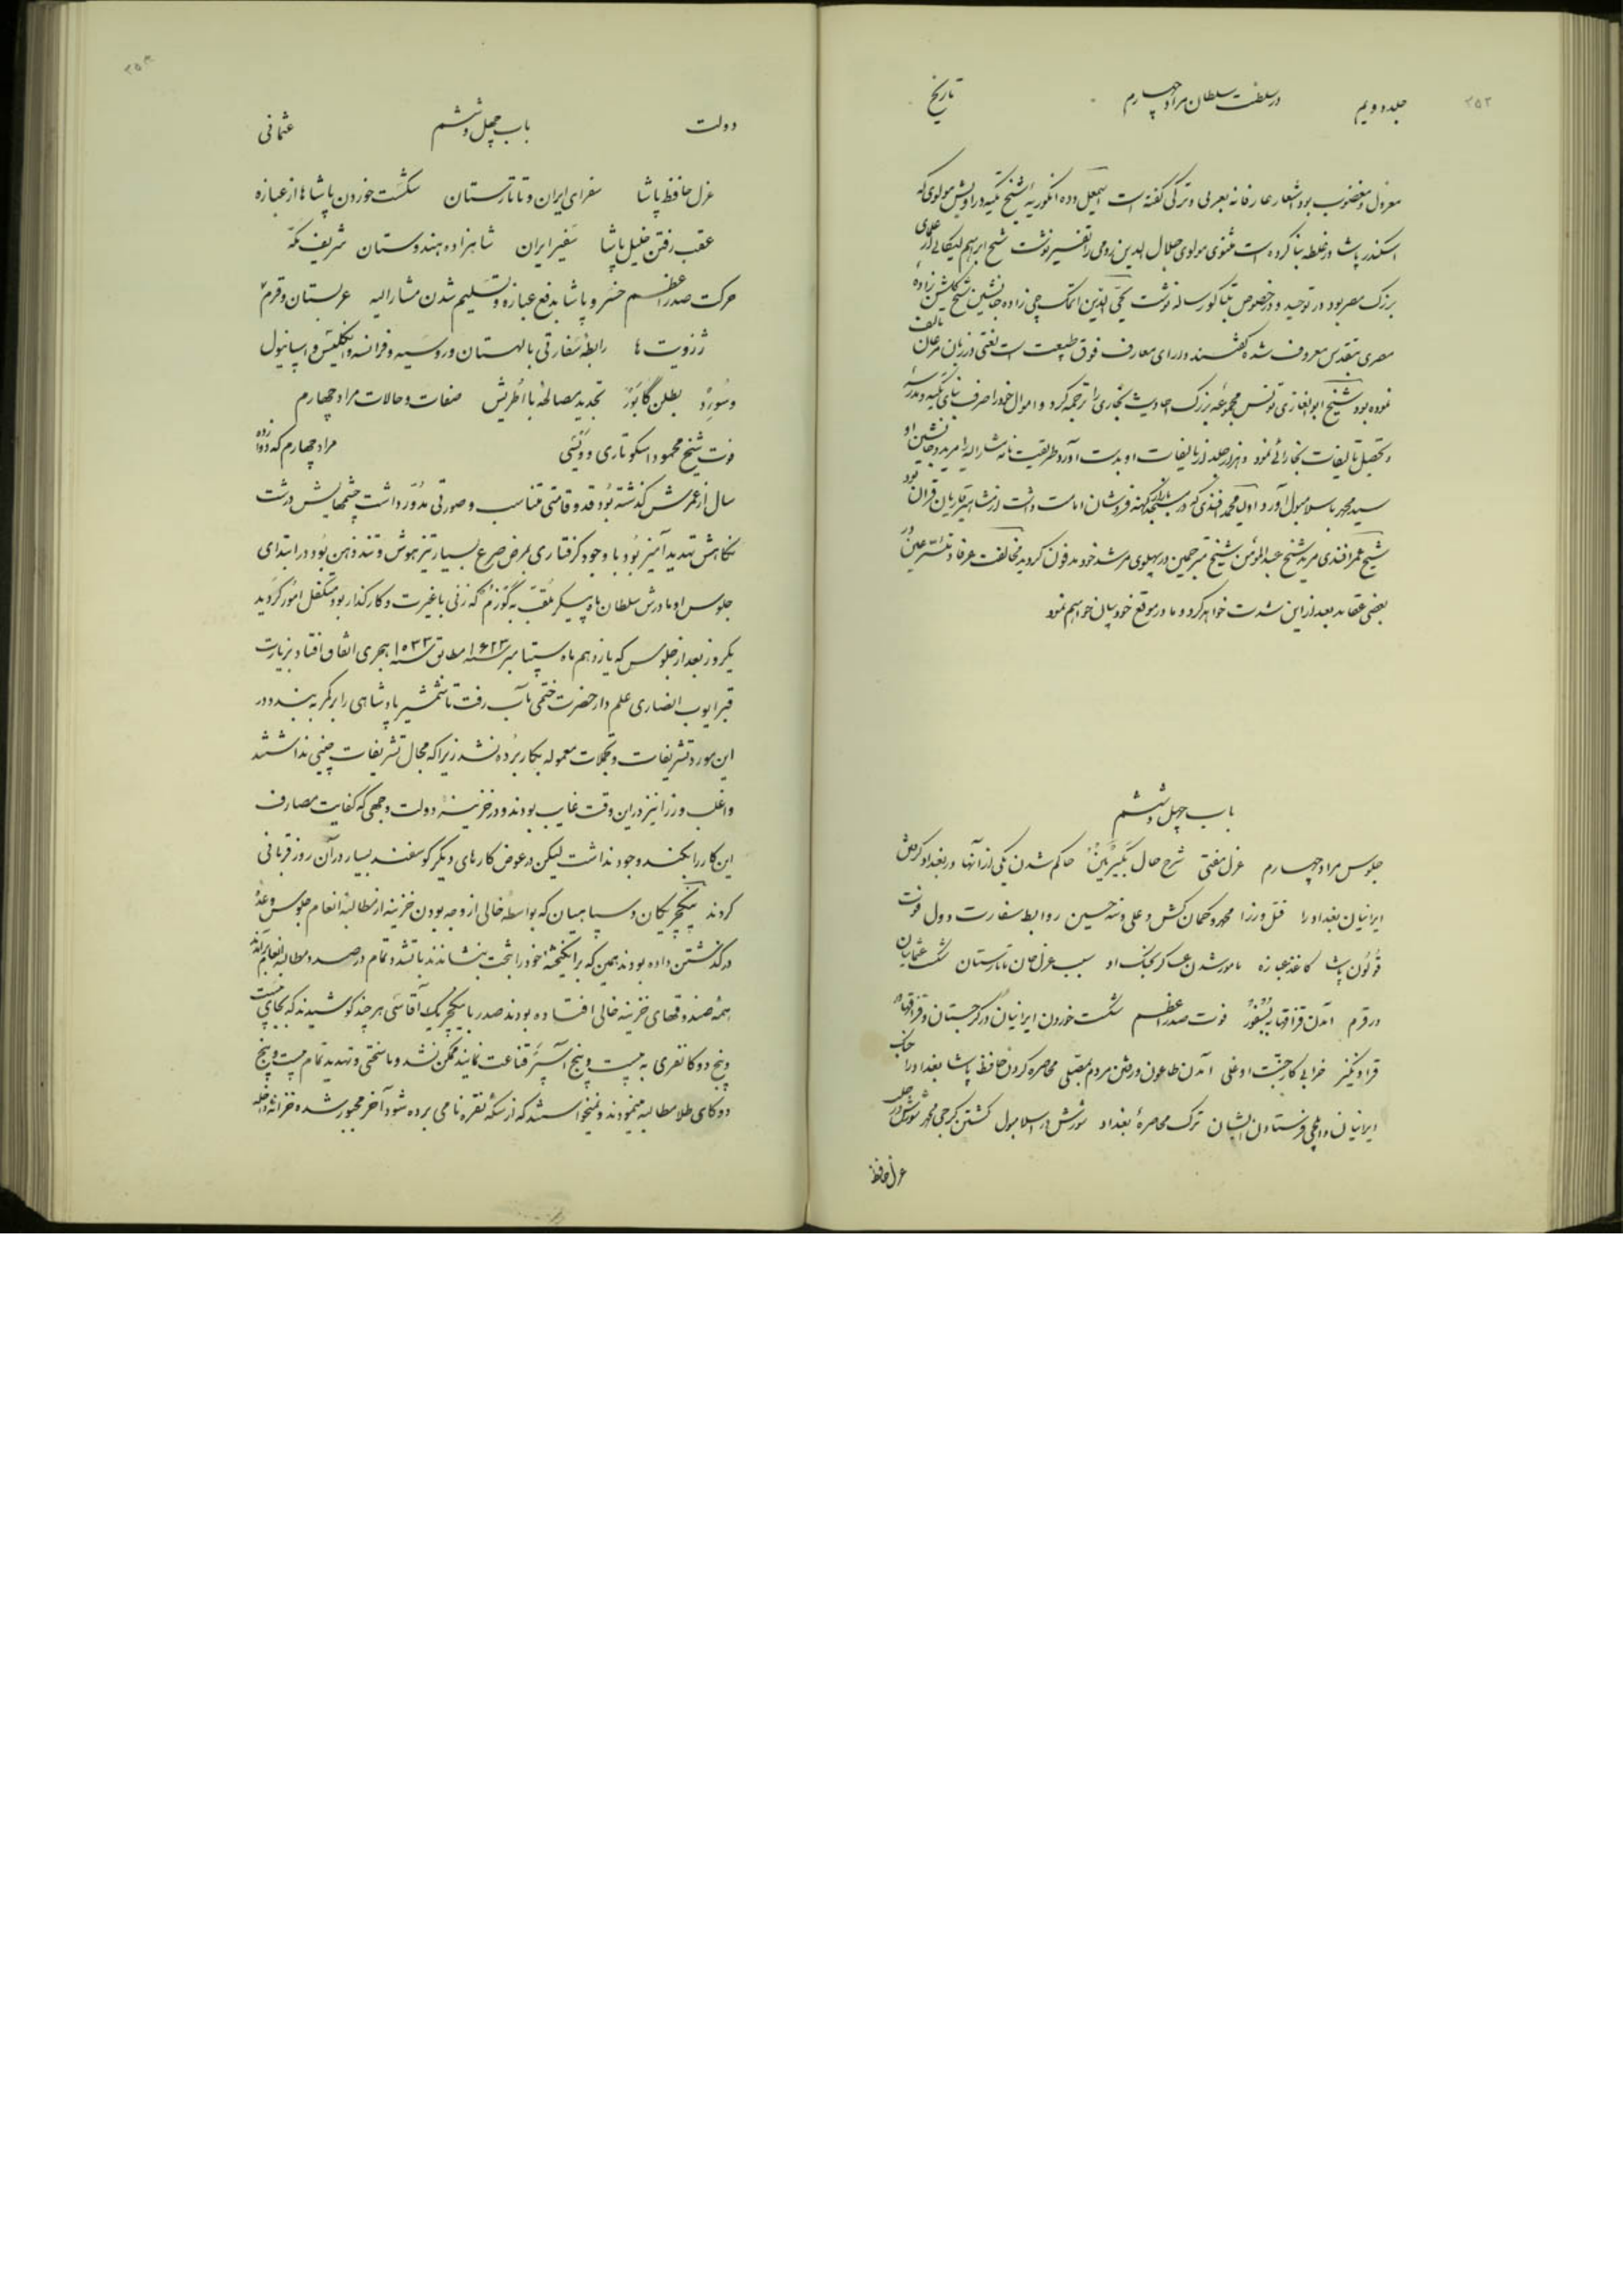 ۲۵۲
جلد دویم در سلطنت سلطان مراد چهارم تاریخ
معزول و مغضوب بود اشعار عارفانه بعربی و ترکی گفته است اسمعیل دده انکوریه شیخ تکیه دراویش مولوی که
اسکندر پاشا در غلطه بنا کرده است مثنوی مولوی جلال الدین رومی را تفسیر نوشت شیخ ابراهیم
بزرک مصر بود در توحید و در خصوص تنباکو رساله نوشت محیی الدین اتمک چی زاده جانشین شیخ کلشن زاده
مصری بتقدس معروف شده کفتند دارای معارف فوق طبیعت است لغتی در زبان مرغان تالیف
نموده بود شیخ ابوالغازی تونس مجموعه بزرک احادیث بخاری را ترجمه کرد و اموال خود را صرف بنای تکیه و مدرسه
و تحصیل تالیفات بخارائی نمود و هزار جلد از تالیفات او بدست آورد طریقت نامه مشارالیه را مرید و جانشین او
سید محمد باسلامبول آورد اولیا محمد افندی که در مسجد بازار کهنه فروشان امامت داشت از مشاهیر قاریان قران بود
شیخ عمر افندی مرید شیخ عبدالمؤمن شیخ مترجمین در پهلوی مرشد خود مدفون کردید مخالفت عرفا و متشرعین در
بعضی عقاید بعد از این شدت خواهد کرد و ما در موقع خود بیان خواهیم نمود
باب چهل و ششم
جلوس مراد چهارم عزل مفتی شرح حال حاکم شدن یکی از آنها در بغداد کرفتن
ایرانیان بغداد را قتل وزرا محمد و کمان کش و علی و تنه حسین روابط سفارت دول فوت
قوئون پاشا کاغذ عبازه مامور شدن عساکر بجنک او سبب عزل خان تاتارستان شکست عثمانیان
در قرم آمدن قزاقها به بُسفُور فوت صدر اعظم شکست خوردن ایرانیان در کرجستان و قزاقها در
قرادنکیز خرابی کار جنت اوغلی آمدن طاعون و رفتن مردم بمصلی محاصره کردن حافظ پاشا بغداد را جنک
ایرانیان و ایلچی فرستادن ایشان ترک محاصرهٔ بغداد شورش در اسلامبول کشتن کرجی محمد شورش در حلب
عزل حافظ
۲۵۳
دولت باب چهل و ششم عثمانی
عزل حافظ پاشا سفرای ایران و تاتارستان شکست خوردن پاشاها از عبازه
عقب رفتن خلیل پاشا سفیر ایران شاهزاده هندوستان شریف مکّه
حرکت صدر اعظم خسرو پاشا بدفع عبازه و تسلیم شدن مشارالیه عربستان و قرم
ژزویت ها رابطهٔ سفارتی با لهستان و روسیه و فرانسه و انکلیس و اسپانیول
و سُورِد بطلن کابُوَر تجدید مصالحهٔ با اطریش صفات و حالات مراد چهارم
فوت شیخ محمود اسکوتاری و وَیْسَی مراد چهارم که دوازده
سال از عمرش کذشته بود قد و قامتی متناسب و صورتی مدوّر داشت چشمهایش درشت
نکاهش تهدید آمیز بود با وجود کرفتاری بمرض صرع بسیار تیز هوش و تند ذهن بود در ابتدای
جلوس او مادرش سلطان ماه پیکر ملقب به گوزم که زنی باغیرت و کارکذار بود متکفل امور کردید
یکروز بعد از جلوس که یازدهم ماه سپتامبر سنه ۱۶۲۳ مطابق سنه ۱۰۳۳ هجری اتفاق افتاد بزیارت
قبر ایوب انصاری علم دار حضرت ختمی مآب رفت تا شمشیر پادشاهی را بر کمر به بندد در
این مورد تشریفات و تجملات معموله بکار برده نشد زیرا که مجال تشریفات چینی نداشتند
و اغلب وزرا نیز در این وقت غایب بودند و در خزینهٔ دولت وجهی که کفایت مصارف
این کار را بکند وجود نداشت لیکن در عوض کارهای دیکر کوسفند بسیار در آن روز قربانی
کردند ینکچریکان و سپاهیان که بواسطه خالی از وجه بودن خزینه از مطالبهٔ انعام جلوس وعدهٔ
درکذشتن داده بودند همین که برانکیخته خود را بتخت بنشاندند باتشدد تمام درصدد مطالبه انعام برآمدند
همه صندوقهای خزینه خالی افتاده بودند صدر با ینکچریک آقاسی هر چند کوشیدند که بجای بیست
و پنج دوکا نفری به بیست و پنج آسپَر قناعت نمایند ممکن نشد و با سختی و تهدید تمام بیست و پنج
دوکای طلا مطالبه مینمودند و نمیخواستند که از سکهٔ نقره نامی برده شود آخر مجبور شده خزانهٔ داخله